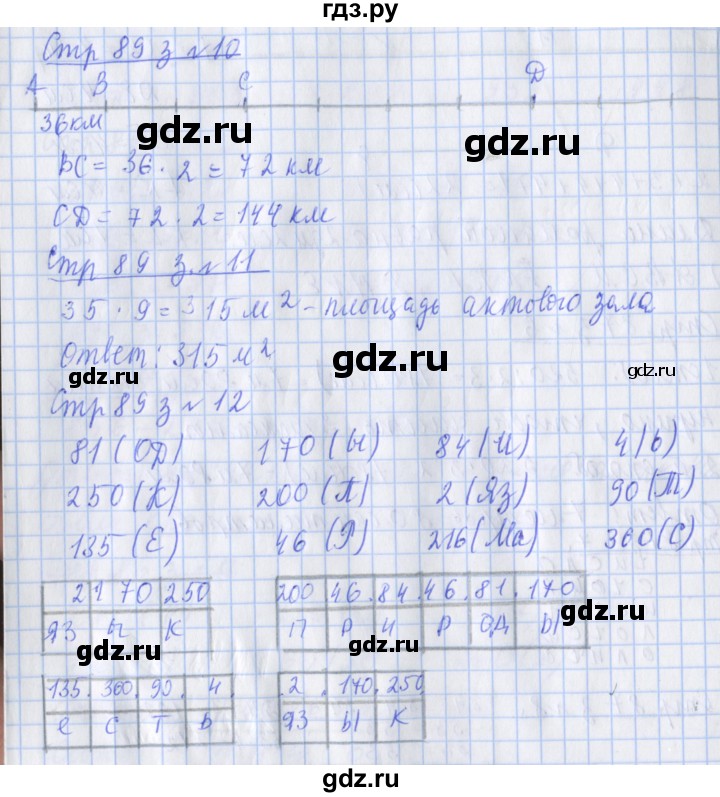 гдз.ру
Стр 89 з №10
А В С D
36км
gdz.ru gdz.ru
ВС = 36 · 2 = 72 км
СD = 72 · 2 = 144 км
Стр 89 з №11
35 · 9 = 315 м² - площадь актового зала
Ответ: 315 м²
gdz.ru gdz.ru gdz.ru
Стр 89 з №12
81 (ОД) 170 (Ы) 84 (И) 4 (Ь)
250 (К) 200 (П) 2 (ЯЗ) 90 (Т)
135 (Е) 46 (Р) 216 (Ма) 360 (С)
gdz.ru gdz.ru
2 170 250 200 46 84 46 81 170
яз ы к п р и р од ы
gdz.ru gdz.ru
135 360 90 4 2 170 250
е с т ь яз ы к
gdz.ru gdz.ru
gdz.ru